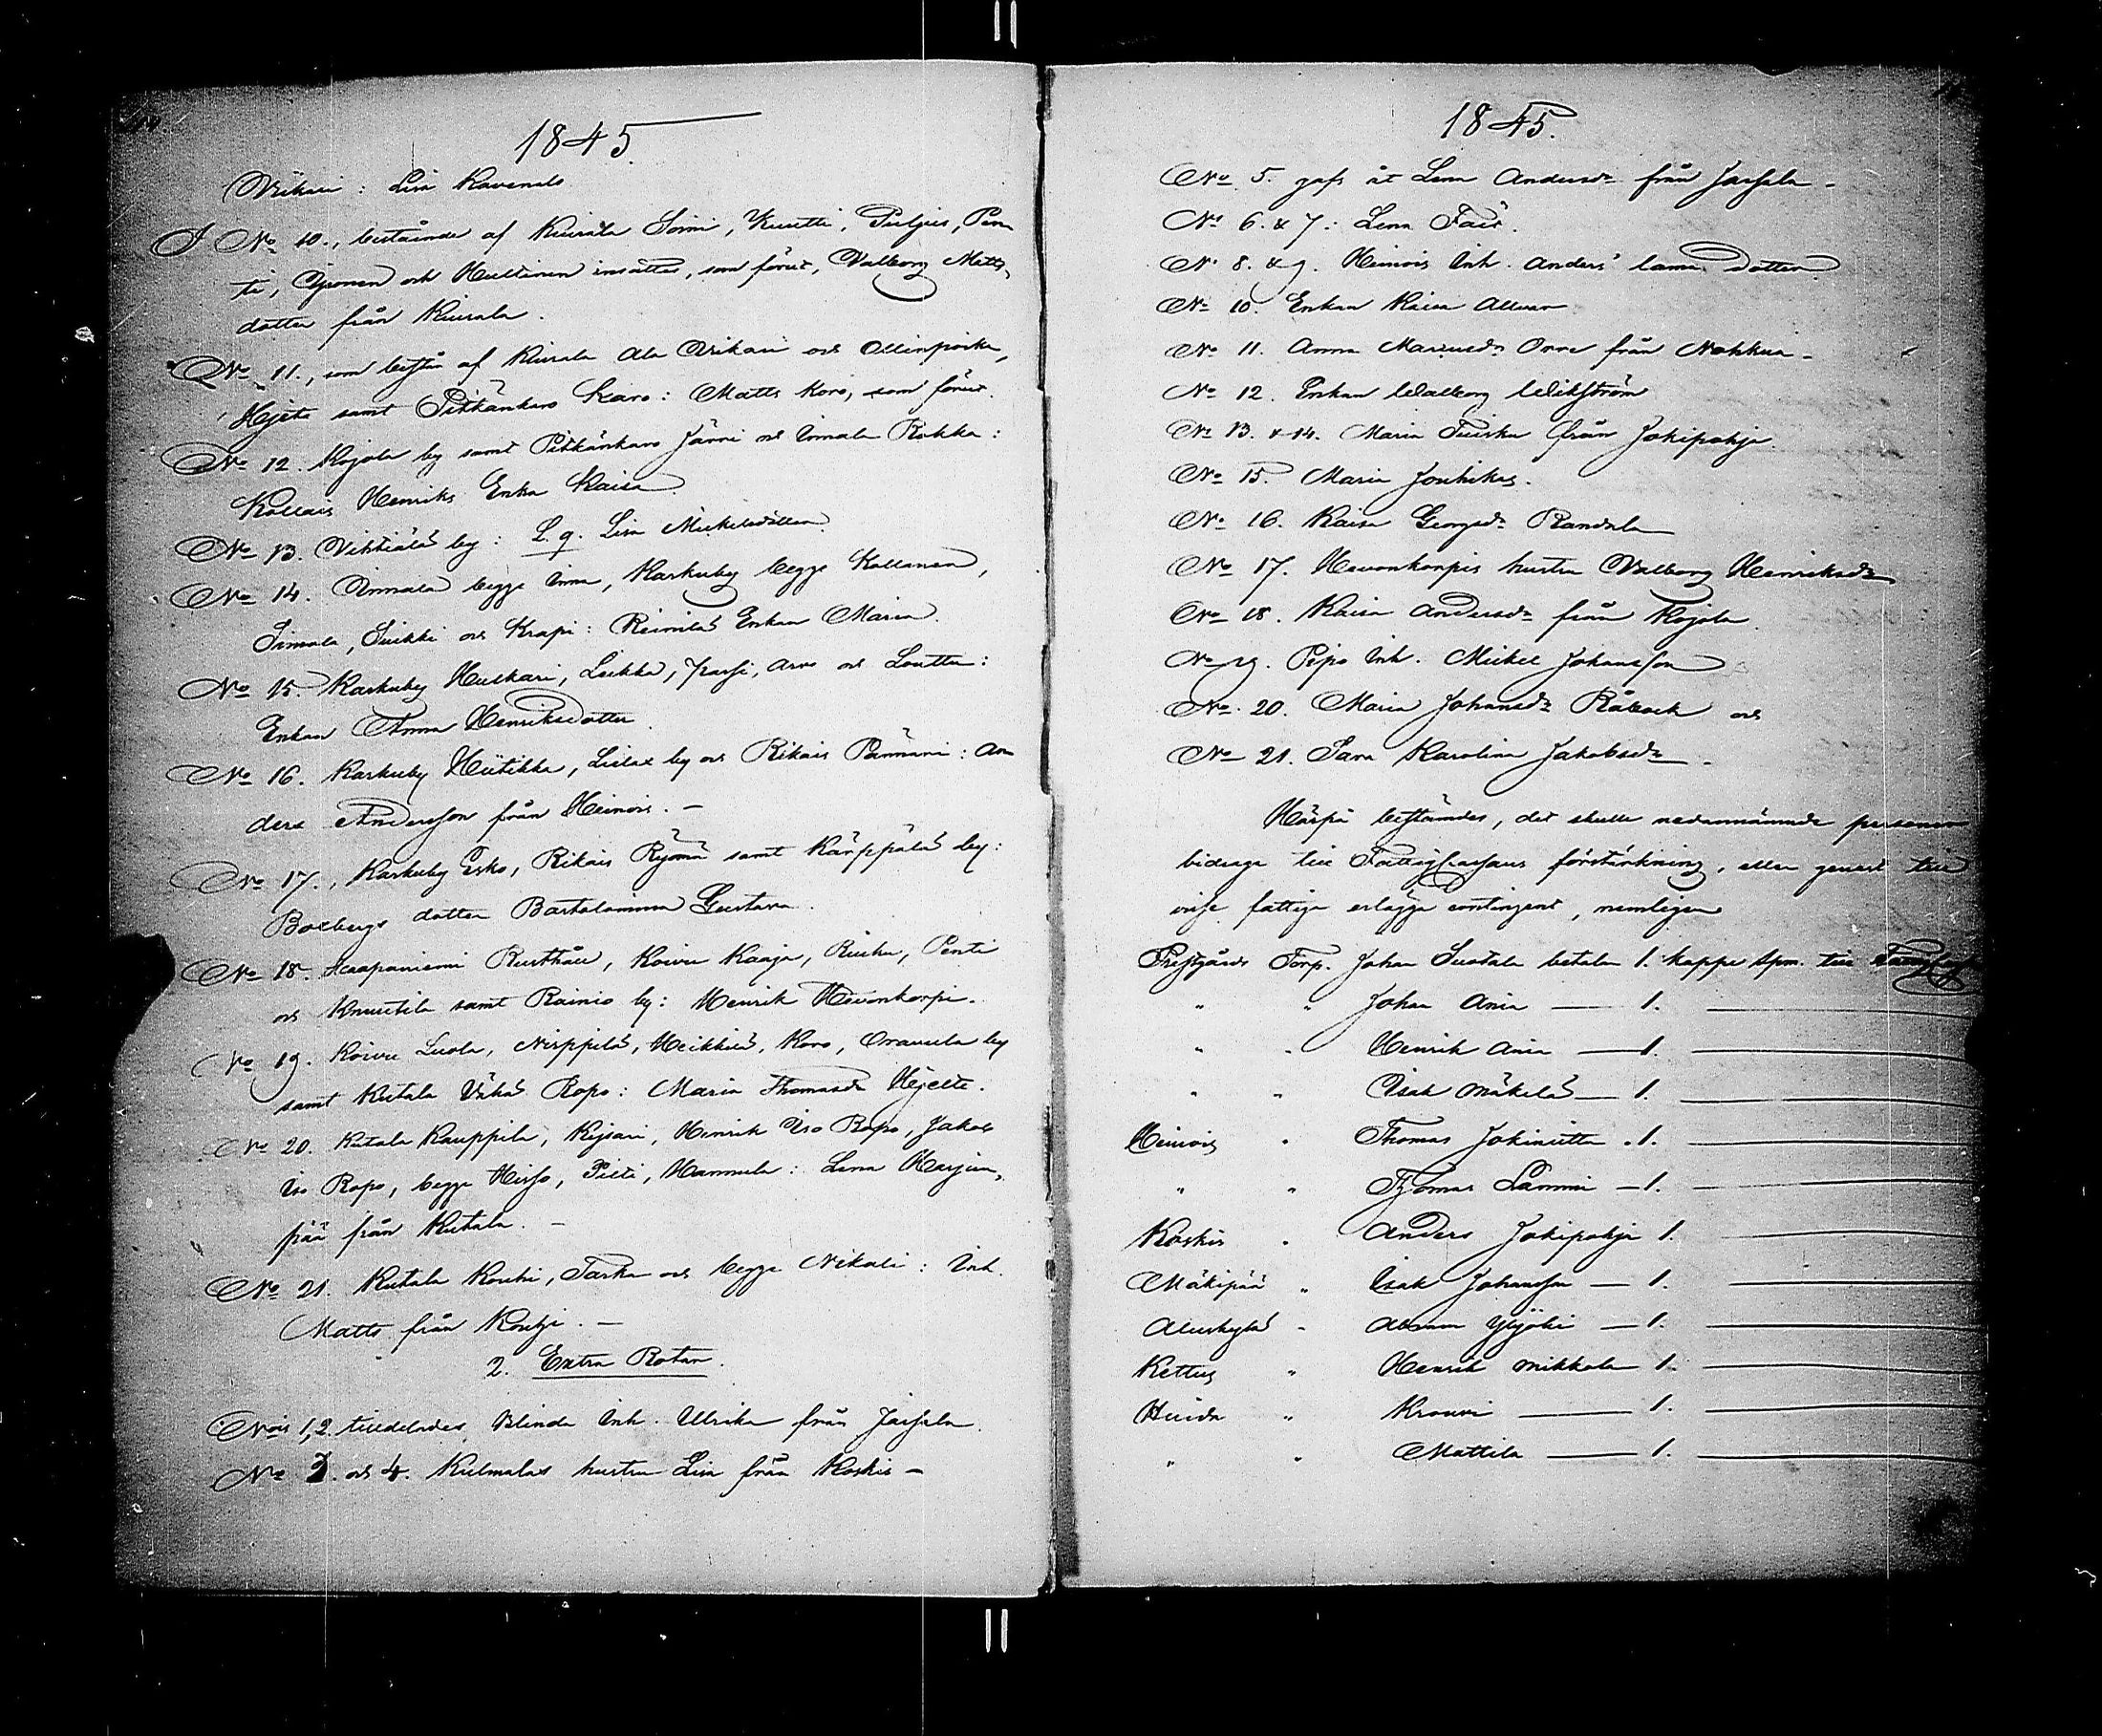 1845
Wikari: Lisa Ravendo
I No 10., bestående af Kiurala Soini, Knutti, Puljus, Pen
ti, Yjönen och Hultinen insattes, som förut, Walborg Matts-
dotter från Kiurala.
No 11., som består af Kiurala Ala Wikari och Ollinpoika,
Hjeta samt Pitkänkaro Karo: Matts Koro, som förut.
No 12. Kojola by samt Pitkänkaro Järvi och Innala Rokka:
Kallais Henriks Enka Kaisa
No 13. Vihkiälä by: L. q. Lisa Mickelsdotter.
No 14. Innala begge Inna, Karkuby begge Kallanen,
Simola, Suikki och Krapi: Reinilä Enkan Maria.
No 15. Karkuby Huskari, Liukka, Passi, Arvo och Louttu:
Enkan Anna Henriksdotter.
No 16. Karkuby Hiitikka, Liulax by och Rikais Pännäri: An
ders Andersson från Heinois. —
No 17., Karkuby Esko, Rikais Ryömä samt Kärppälä by:
Boxbergs dotter Bartolomina Gustava.
No 18. Haapaniemi Rusthåll, Koivu Kaaja, Riuku, Penti
och Knuutila samt Rainio by: Henrik Hevonkorpi.
No 19. Koivu Luola, Nirppilä, Heikkilä, Koro, Oravula by
samt Kutala Vähä Ropo: Maria Thomasdr Hjelte.
No 20. Kutala Kauppila, Kejsari, Henrik Iso Ropo, Jakob
Iso Ropo, begge Hirso, Pilti, Hannula: Lena Harjun-
pää från Kutala. —
No 21. Kutala Kouhi, Tarka och begge Nikali: Inh.
Matts från Koutji. —
2. Extra Rotar.
Nris 1,2. tilldelades Blinda Inh. Ulrika från Jaatsala.
No 3. och 4. Kulmalas hustru Lisa från Koskis —
1845.
No 5. gafs åt Lena Andersdr från Jaatsala —
No 6. & 7: Lena Fair.
No 8. & 9. Heinois Inh. Anders' lama dotter
No 10. Enkan Kaisa Allvar
No 11. Anna Mariusdr Orre från Nohkua —
No 12. Enkan Walborg Wikström
No 13. & 14. Maria Tuisku från Jokipohja
No 15. Maria Jouhikas.
No 16. Kaisa Georgsdr Randala
No 17. Hevonkorpis hustru Walborg Henriksdr
No 18. Kaisa Andersdr från Kojola.
No 19. Pipo Inh. Mickel Johansson
No 20. Maria Johansdr Råback och
No 21. Sara Karolina Jakobsdr —
Härpå bestämdes, det skulle nedannämnde personer
bidraga till Fattigkassans förstärkning, eller genast till
visse fattiga erlägga contingent, nemligen
Prestgårds Torp. Johan Suotala betalar 1. kappe Spm. till
" " Johan Ania — 1.
" " Henrik Ania — 1.
" " Isak Mäkelä — 1.
Heinois " Thomas Jokiniitty . 1.
" " Thomas Lammi — 1.
Koskis " Anders Jokipohja 1.
Mäkipää " Isak Johansson — 1.
Aluskylä " Abram Ylijoki — 1.
Kettus " Henrik Mikkola 1.
Huida " Krouvi — 1.
" " Mattila — 1.